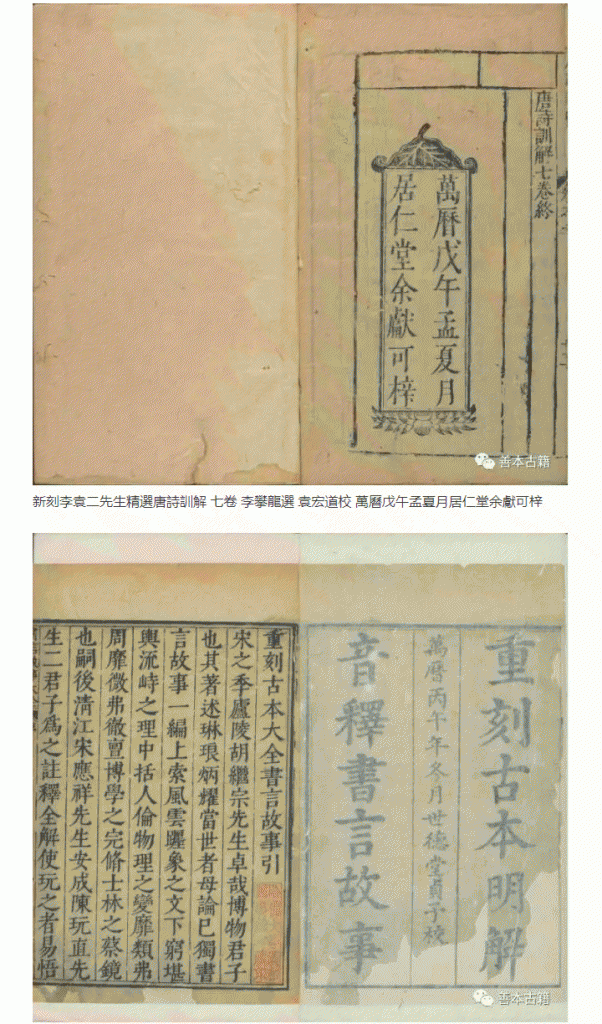 唐詩訓解七卷終
萬曆戊午孟夏月
居仁堂余獻可梓
善本古籍
新刻李袁二先生精選唐詩訓解 七卷 李攀龍選 袁宏道校 萬曆戊午孟夏月居仁堂余獻可梓
重刻古本明解
萬曆丙午年冬月世德堂貞子校
音釋書言故事
重刻古本大全書言故事引
宋之季廬陵胡繼宗先生卓哉博物君子
也其著述琳琅炳耀當世者毋論已獨書
言故事一編上索風雲曬象之文下窮堪
輿流峙之理中括人倫物理之變靡類弗
周靡微弗徹亶博學之完脩士林之蔡鏡
也嗣後清江宋應祥先生安成陳玩直先
生二君子為之註釋全解使玩之者易悟
善本古籍